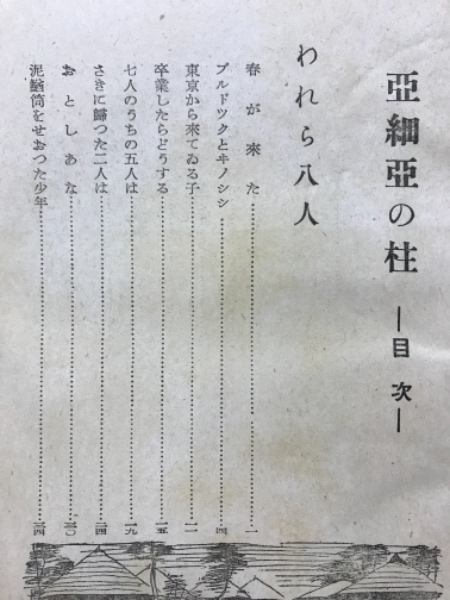 亞細亞の柱 ―目次―
われら八人
春が來た……一
ブルドツクとヰノシシ……四
東京から來てゐる子……一一
卒業したらどうする……一五
七人のうちの五人は……一九
さきに歸つた二人は……二四
おとしあな……三〇
泥鰌筒をせおつた少年……三四